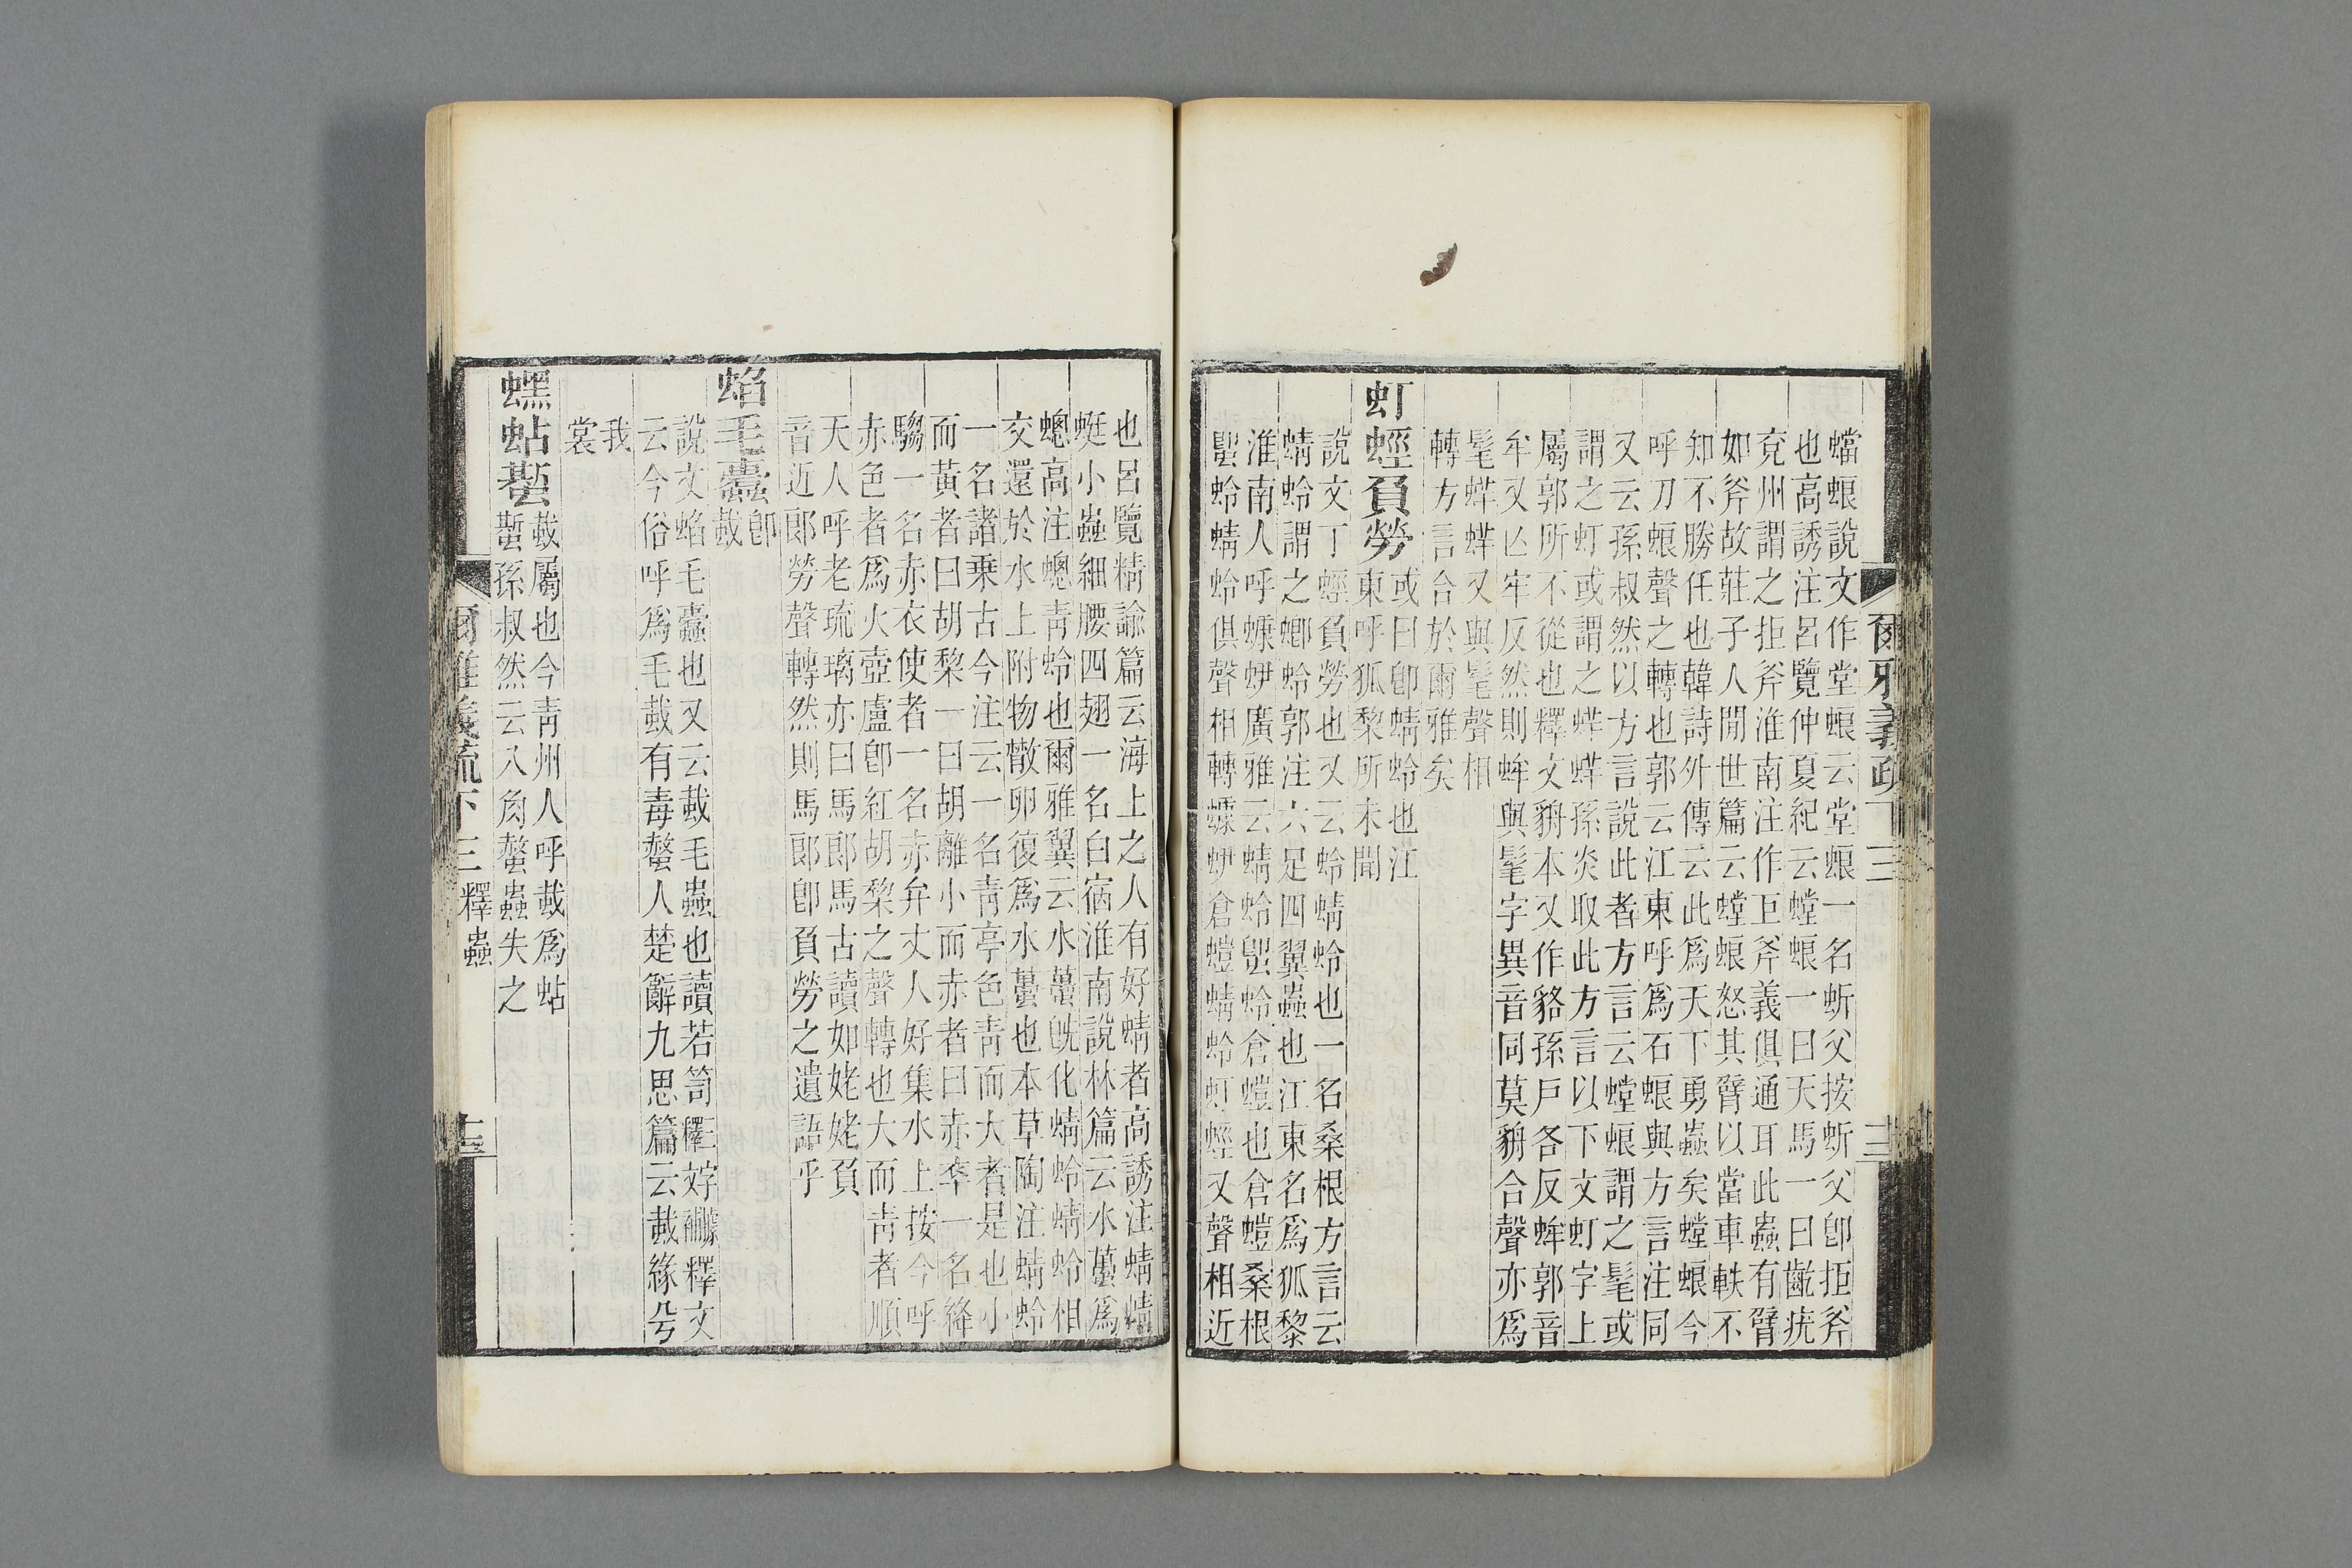 爾雅義疏下三
十三
蟷蜋說文作堂蜋云堂蜋一名蚚父按蚚父卽拒斧
也高誘注呂覽仲夏紀云螳蜋一曰天馬一曰齕疣
兗州謂之拒斧淮南注作巨斧義俱通耳此蟲有臂
如斧故莊子人閒世篇云螳蜋怒其臂以當車軼不
知不勝任也韓詩外傳云此爲天下勇蟲矣螳蜋今
呼刀蜋聲之轉也郭云江東呼爲石蜋與方言注同
又云孫叔然以方言說此者方言云螳蜋謂之髦或
謂之虰或謂之蛘蛘孫炎取此方言以下文虰字上
屬郭所不從也釋文貈本又作貉孫戶各反蛑郭音
牟又亾牢反然則蛑與髦字異音同莫貈合聲亦爲
髦蛘蛘又與髦聲相
轉方言合於爾雅矣
虰蛵負勞
或曰卽蜻蛉也江
東呼狐黎所未聞
說文丁蛵負勞也又云蛉蜻蛉也一名桑根方言云
蜻蛉謂之蝍蛉郭注六足四翼蟲也江東名爲狐黎
淮南人呼蠊蛜廣雅云蜻蛉蛉倉螘也倉螘桑根
蛉蜻蛉俱聲相轉蠊蛜倉螘蜻蛉虰蛵又聲相近
也呂覽精諭篇云海上之人有好蜻者高誘注蜻蜻
蜓小蟲細腰四翅一名白宿淮南說林篇云水蠆爲
蟌高注蟌青蛉也爾雅翼云水蠆旣化蜻蛉蜻蛉相
交還於水上附物㪚卵復爲水蠆也本草陶注蜻蛉
一名諸乗古今注云一名青亭色青而大者是也小
而黃者曰胡黎一曰胡離小而赤者曰赤卒一名絳
騶一名赤衣使者一名赤弁丈人好集水上按今呼
赤色者爲火壺盧卽紅胡棃之聲轉也大而青者順
天人呼老琉璃亦曰馬郞馬古讀如姥姥負
音近郞勞聲轉然則馬郞卽負勞之遺語乎
蜭毛蠹
卽
蛓
說文蜭毛蠹也又云蛓毛蟲也讀若笥釋文
云今俗呼爲毛蛓有毒螫人楚辭九思篇云蛓緣兮
我
裳
蟔蛅蟴
蛓屬也今青州人呼蛓爲蛅
蟴孫叔然云八角螫蟲失之
爾雅義疏下三 釋蟲
十三